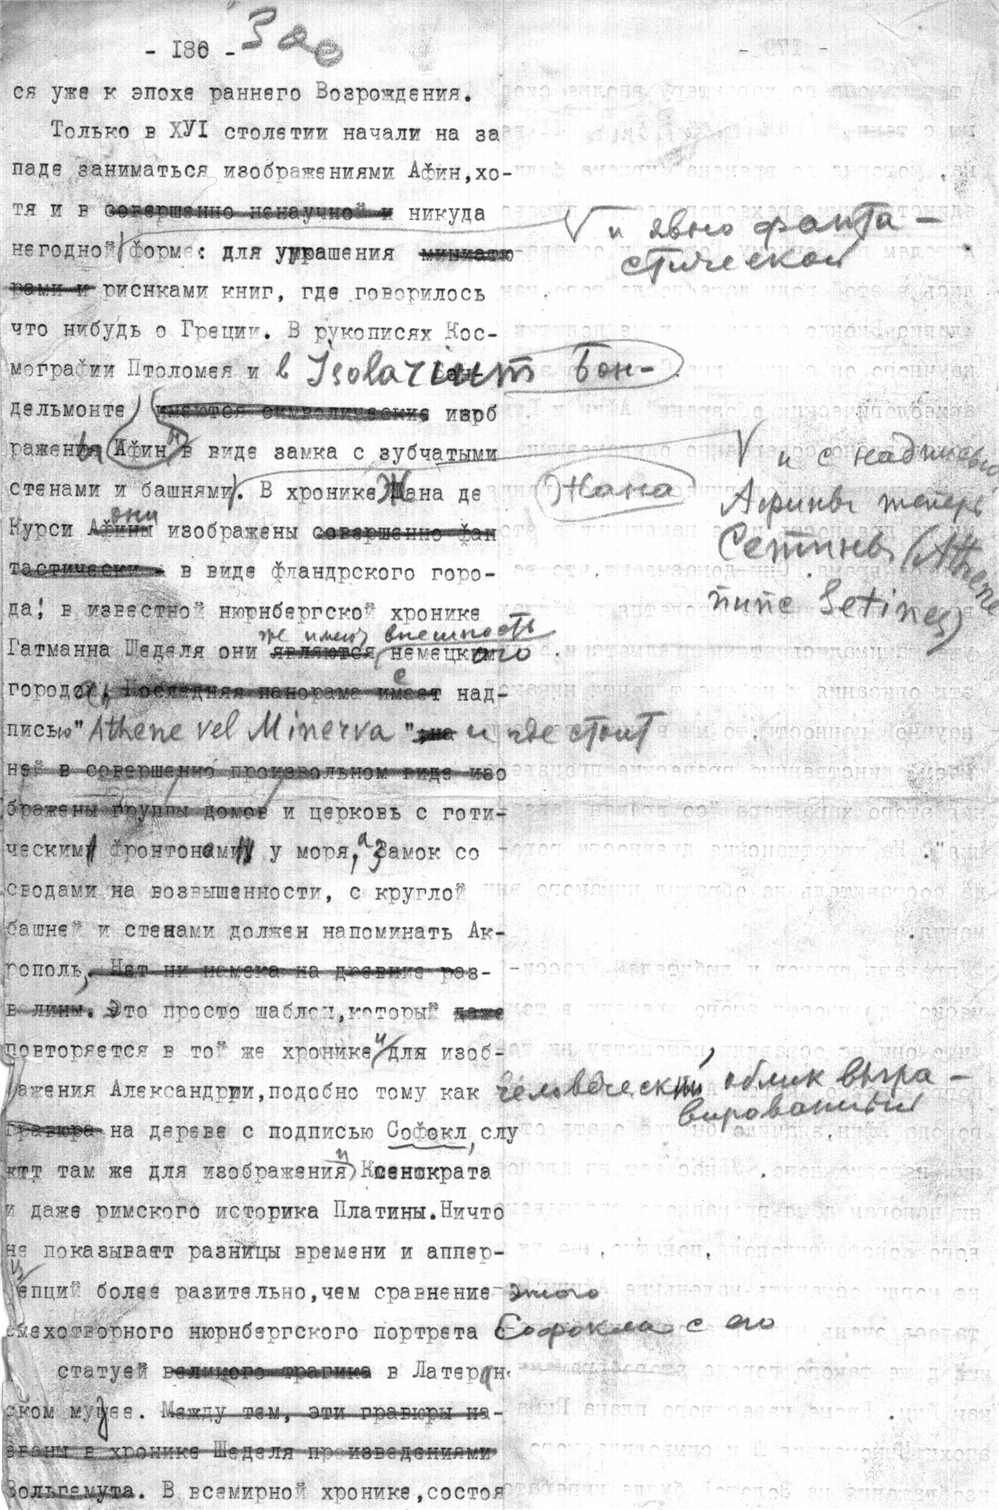 - 186 - 300
ся уже к эпохе раннего Возрождения.
Только в ХУІ столетии начали на за
паде заниматься изображениями Афин,хо-
тя и в совершенно ненаучной и никуда
и явно фанта-
стической
негодной форме: для украшения миниатю
рами и риснками книг, где говорилось
что нибудь о Греции. В рукописях Кос-
мографии Птоломея и в Isolarium Бон-
дельмонте имеются символические изоб
ражения Афин в виде замка с зубчатыми
и с надписью
стенами и башнями. В хронике Жана де
Жана
Афины теперь
Курси Афины они изображены совершенно фан
Сетины (Athene
тастически - в виде фландрского горо-
да; в известной нюрнбергской хронике
nunc Setines)
же имеют внешность
Гатманна Шеделя они являются немецкого
города. Последняя панорама имеет с над-
писью "Athene vel Minerva" и где стоит
ней в совершенно произвольном виде изо
бражены группы домов и церковь с готи-
ческими фронтонами у моря, а замок со
сводами на возвышенности, с круглой
башней и стенами должен напоминать Ак-
рополь, Нет ни намека на древние раз-
валины. Это просто шаблон,который даже
повторяется в той же хронике и для изоб-
ражения Александрии,подобно тому как человеческий облик выгра-
вированный
гравюра на дереве с подписью Софокл, слу
жит там же для изображения и Ксенократа
и даже римского историка Платины.Ничто
не показывает разницы времени и аппер-
цепций более разительно,чем сравнение этого
смехотворного нюрнбергского портрета Софокла с его
статуей великого трагика в Латеран-
ском музее. Между тем, эти гравюры на-
званы в хронике Шеделя произведениями
Вольгемута. В всемирной хронике,состоя